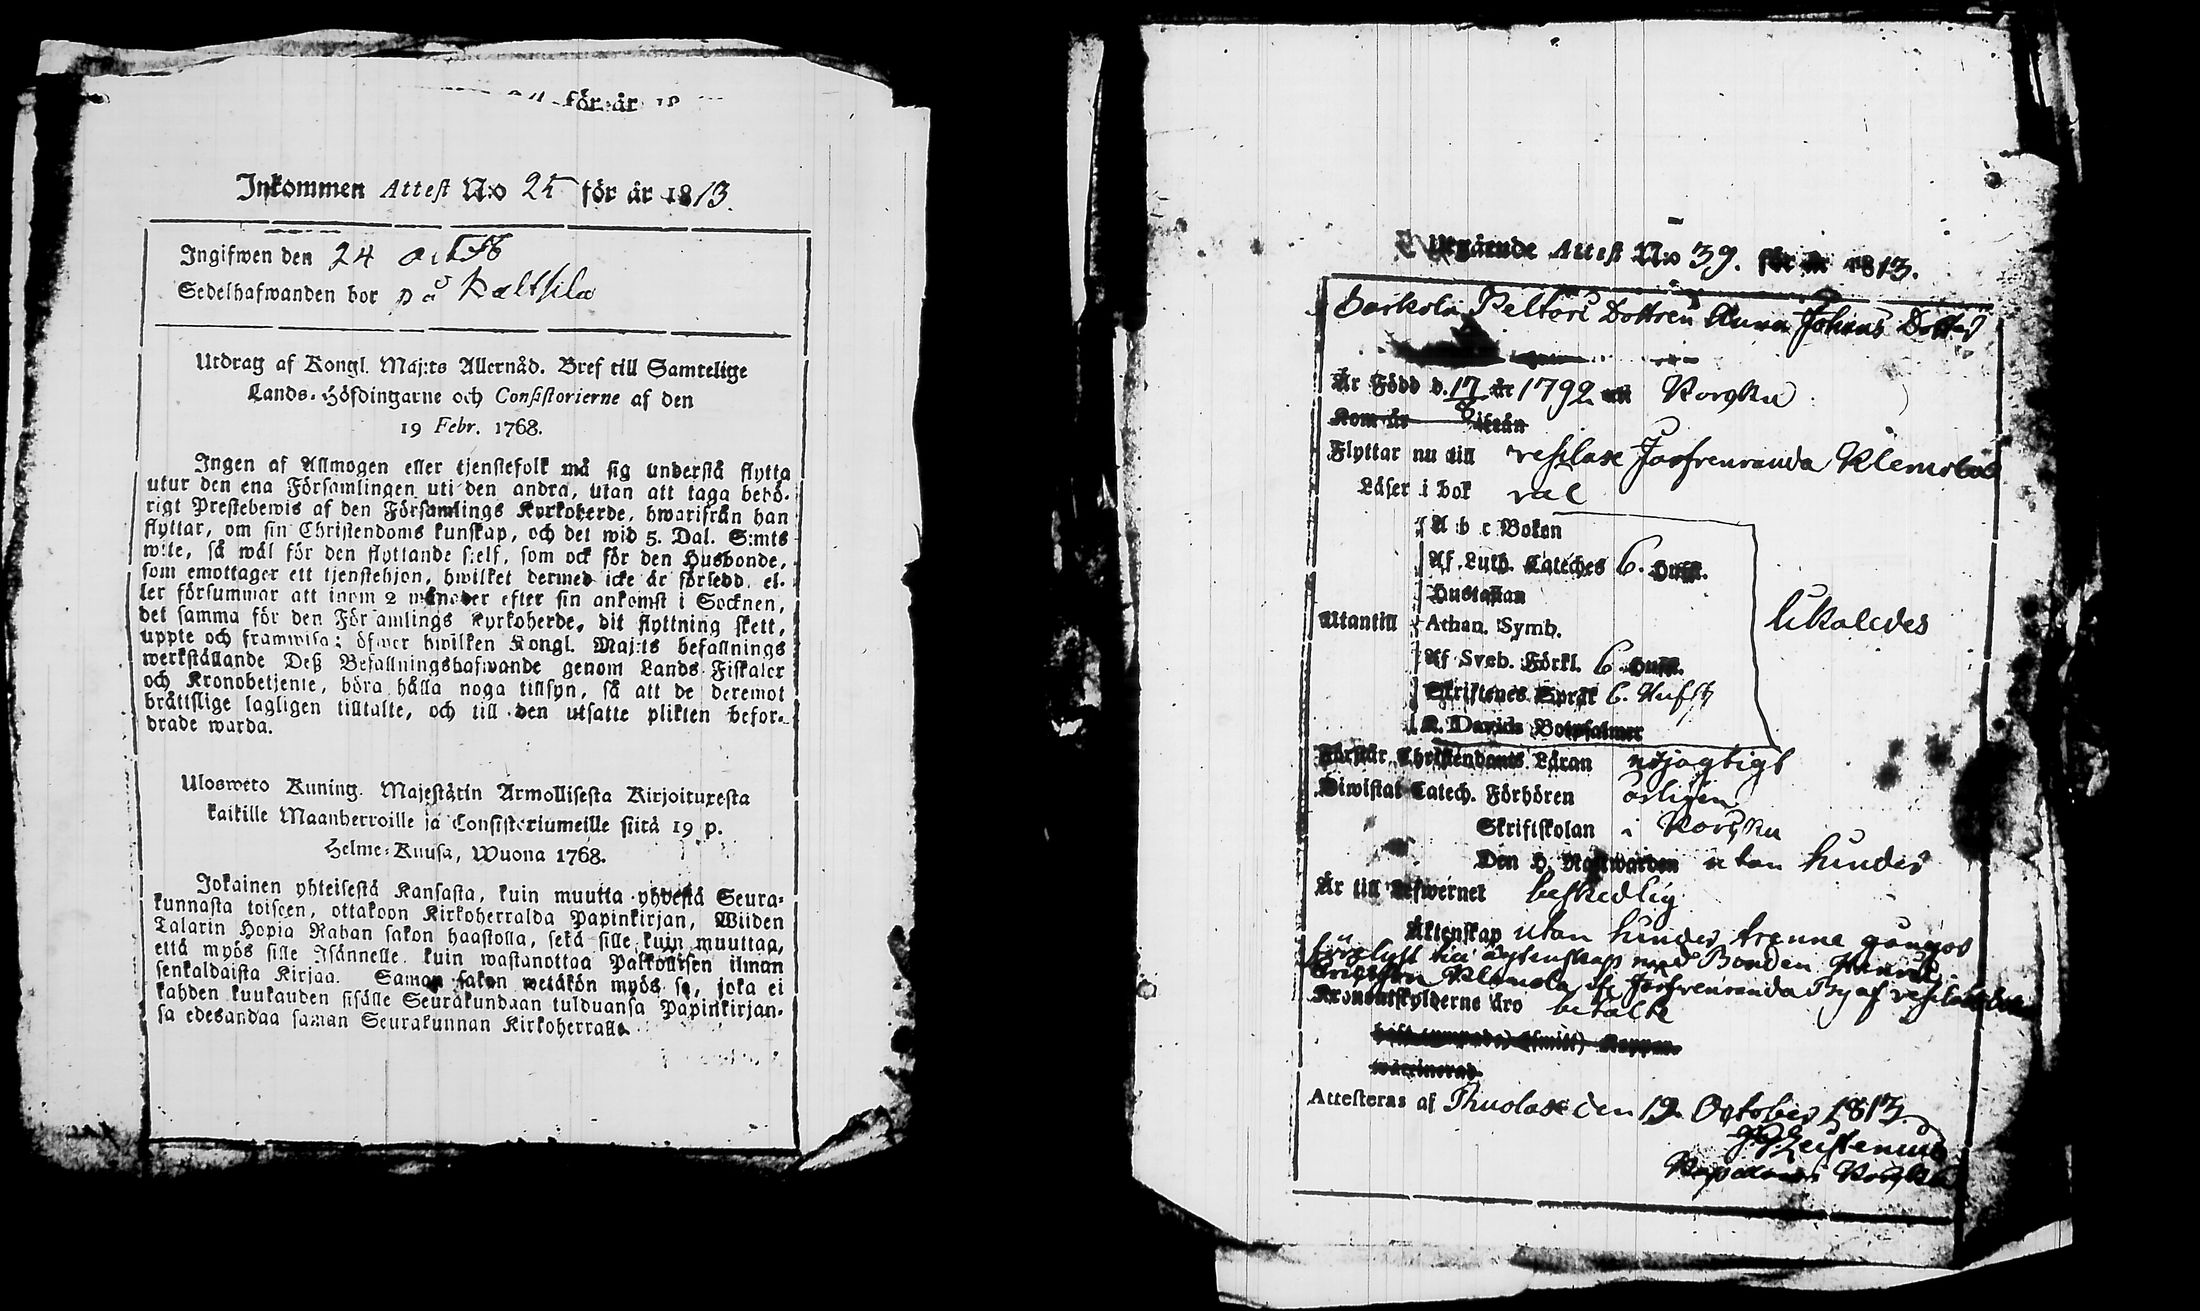 för år 18
Inkommen Attest N:o 25 för år 1813.
Ingifwen den 24 octob
Sedelhafwanden bor på Kaltsila
Utdrag af Kongl. Maj:ts Allernåd. Bref till Samtelige
Lands-Höfdingarne och Consistorierne af den
19 Febr. 1768.
Ingen af Allmogen eller tjenstefolk må sig understå flytta
utur den ena Församlingen uti den andra, utan att taga behö-
rigt Prestebewis af den Församlings Kyrkoherde, hwarifrån han
flyttar, om sin Christendoms kunskap, och det wid 5. Dal. S:mts
wite, så wäl för den flyttande sjelf, som ock för den Husbonde,
som emottager ett tjenstehjon, hwilket dermed icke är försedd, el-
ler försummar att inom 2 månader efter sin ankomst i Socknen,
det samma för den Församlings Kyrkoherde, dit flyttning skett,
uppte och framwisa; öfwer hwilken Kongl. Maj:ts befallnings
werkställande Deß Befallningshafwande genom Lands-Fiskaler
och Kronobetjente, böra hålla noga tillsyn, så att de deremot
bråttslige lagligen tilltalte, och till den utsatte plikten befor-
drade warda.
Uloswéto Kuning. Majestätin Armollisesta Kirjoituxesta
kaikille Maanherroille ja Consistoriumeille siitä 19 p.
Helme-Kuusa, Wuona 1768.
Jokainen yhteisestä Kansasta, kuin muutta yhdestä Seura-
kunnasta toiseen, ottakoon Kirkoherralda Papinkirjan, Wiiden
Talarin Hopia Rahan sakon haastolla, sekä sille kuin muuttaa,
että myös sille Isännelle, kuin wastanottaa Palkollisen ilman
senkaldaista Kirjaa. Saman sakon wetäkön myös se, joka ei
kahden kuukauden sisälle Seurakundaan tulduansa Papinkirjan-
sa edesandaa saman Seurakunnan Kirkoherralle.
Utgående Attest N:o 39. för år 1813.
Sarkola Peltari Dottren Anna Johans Dotter
Är Född d. 17/8 år 1792 uti Korpku
Kom år ifrån
Flyttar nu till vesilax Jarfvenranda Klemola
Läser i bok väl
A b c Boken
Af Luth. Cateches 6. Huffst.
Hustaflan
Utantill Athan. Symb.
Af Sveb. Förkl. 6 Huffst.
Skriftenes Språk 6. Hufst
K. Davids Botpsalmer
likaledes
Förstår Christendoms Läran nöjagtigt
Biwistat Catech. Förhören årligen
Skriftskolan i Korpku
Den H. Nattwarden utan hinder
Är till Lefwernet beskedlig
Äktenskap utan hinder, trenne gångor
förelyst till äktenskap med Bonden Henric
Ericsson Klemola ifr Jarfvenranda By af vesilax
Kronoutskylderne äro betalte
waccinerad.
Attesteras af Thuolax den 19 October 1813.
Korpku